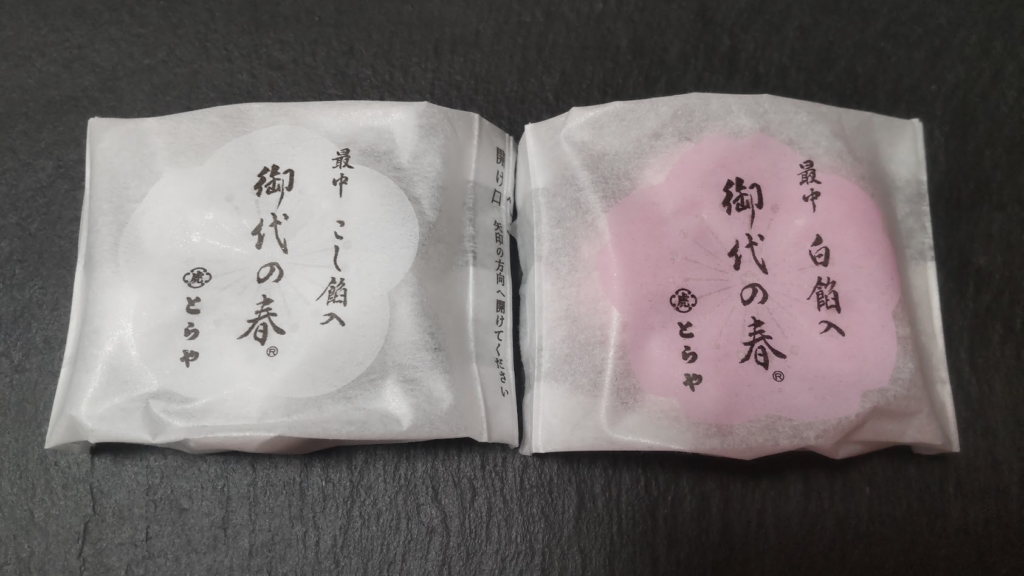 最中 こし餡入
御代の春®
虎 とらや
開け口 矢印の方向へ開けてください
最中 白餡入
御代の春®
虎 とらや